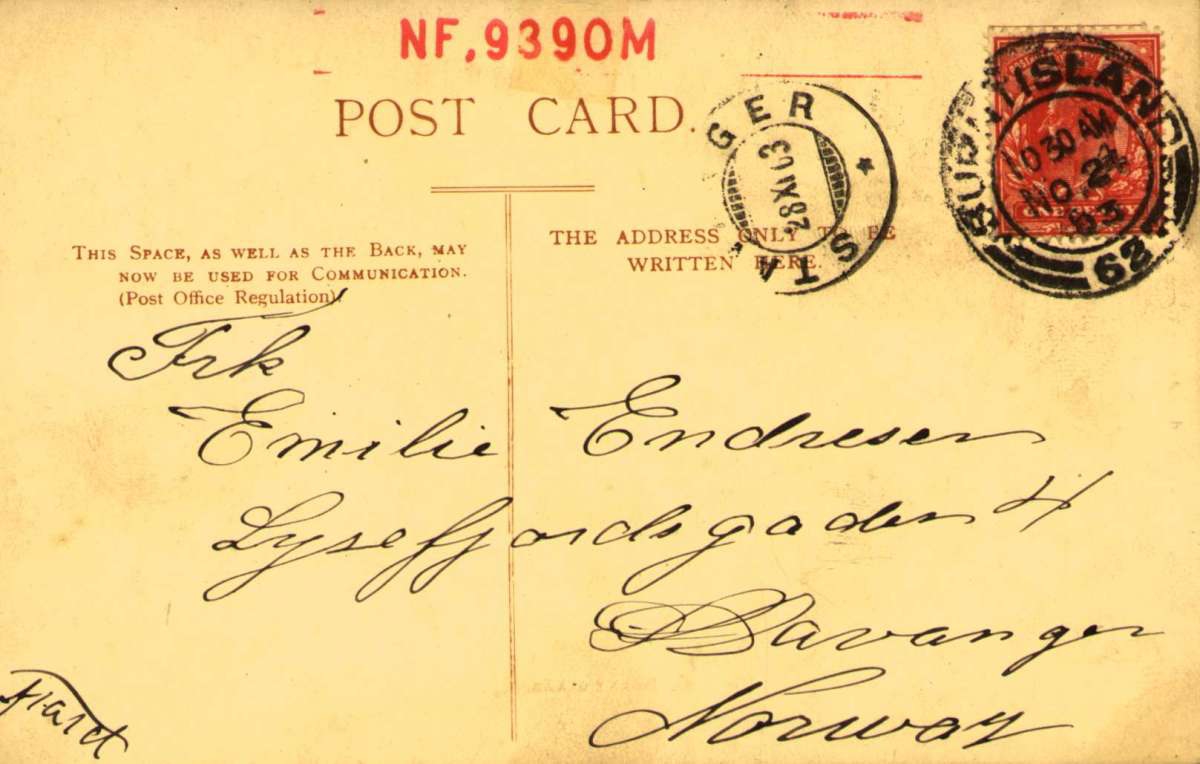 NF.9390M
POST CARD.
STA GER
28 XI 03
BURNTISLAND
10 30 AM
NO 24
03
62
ONE PENNY
THIS SPACE, AS WELL AS THE BACK, MAY
NOW BE USED FOR COMMUNICATION.
(Post Office Regulation).
THE ADDRESS ONLY TO BE
WRITTEN HERE.
Frk
Emilie Endresen
Lysefjordsgaden 4
Stavanger
Norway